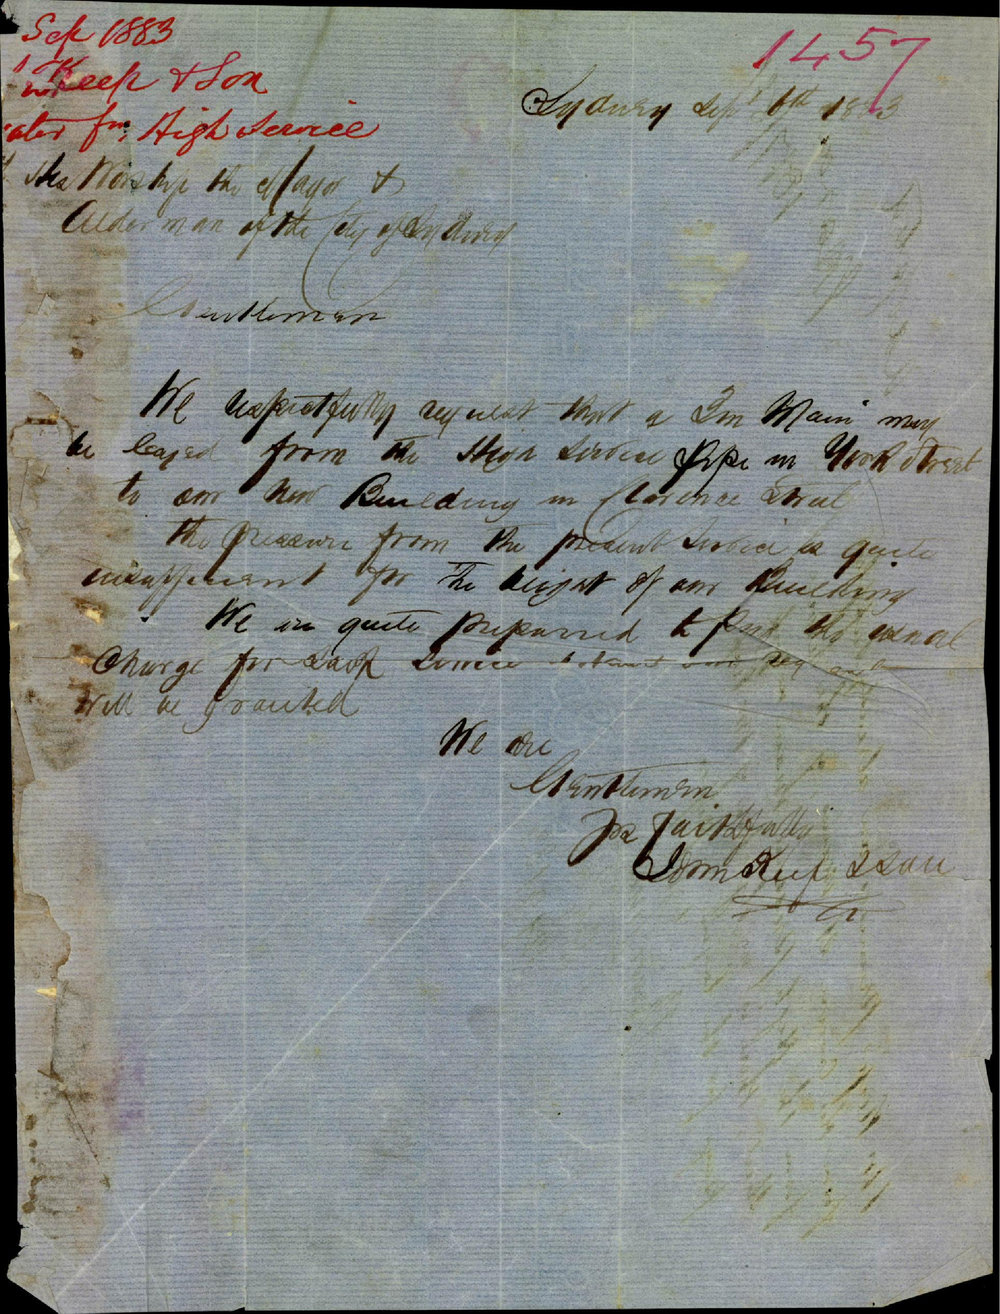 Sep 1883
Keep & Son
ater for High Service
1457
Sydney Sept 6th 1883
His Worship the Mayor &
Alderman of the City of Sydney
Gentleman
We respectfully request that a 2in Main may
be layed from the High Service pipe in York Street
to our new Building in Clarence Street
the pressure from the present service is quite
insufficient for the height of our Building
We are quite prepared to pay the usual
Charge for such service
will be granted
We are
Gentlemen
Yrs faithfully
John Keep & Son